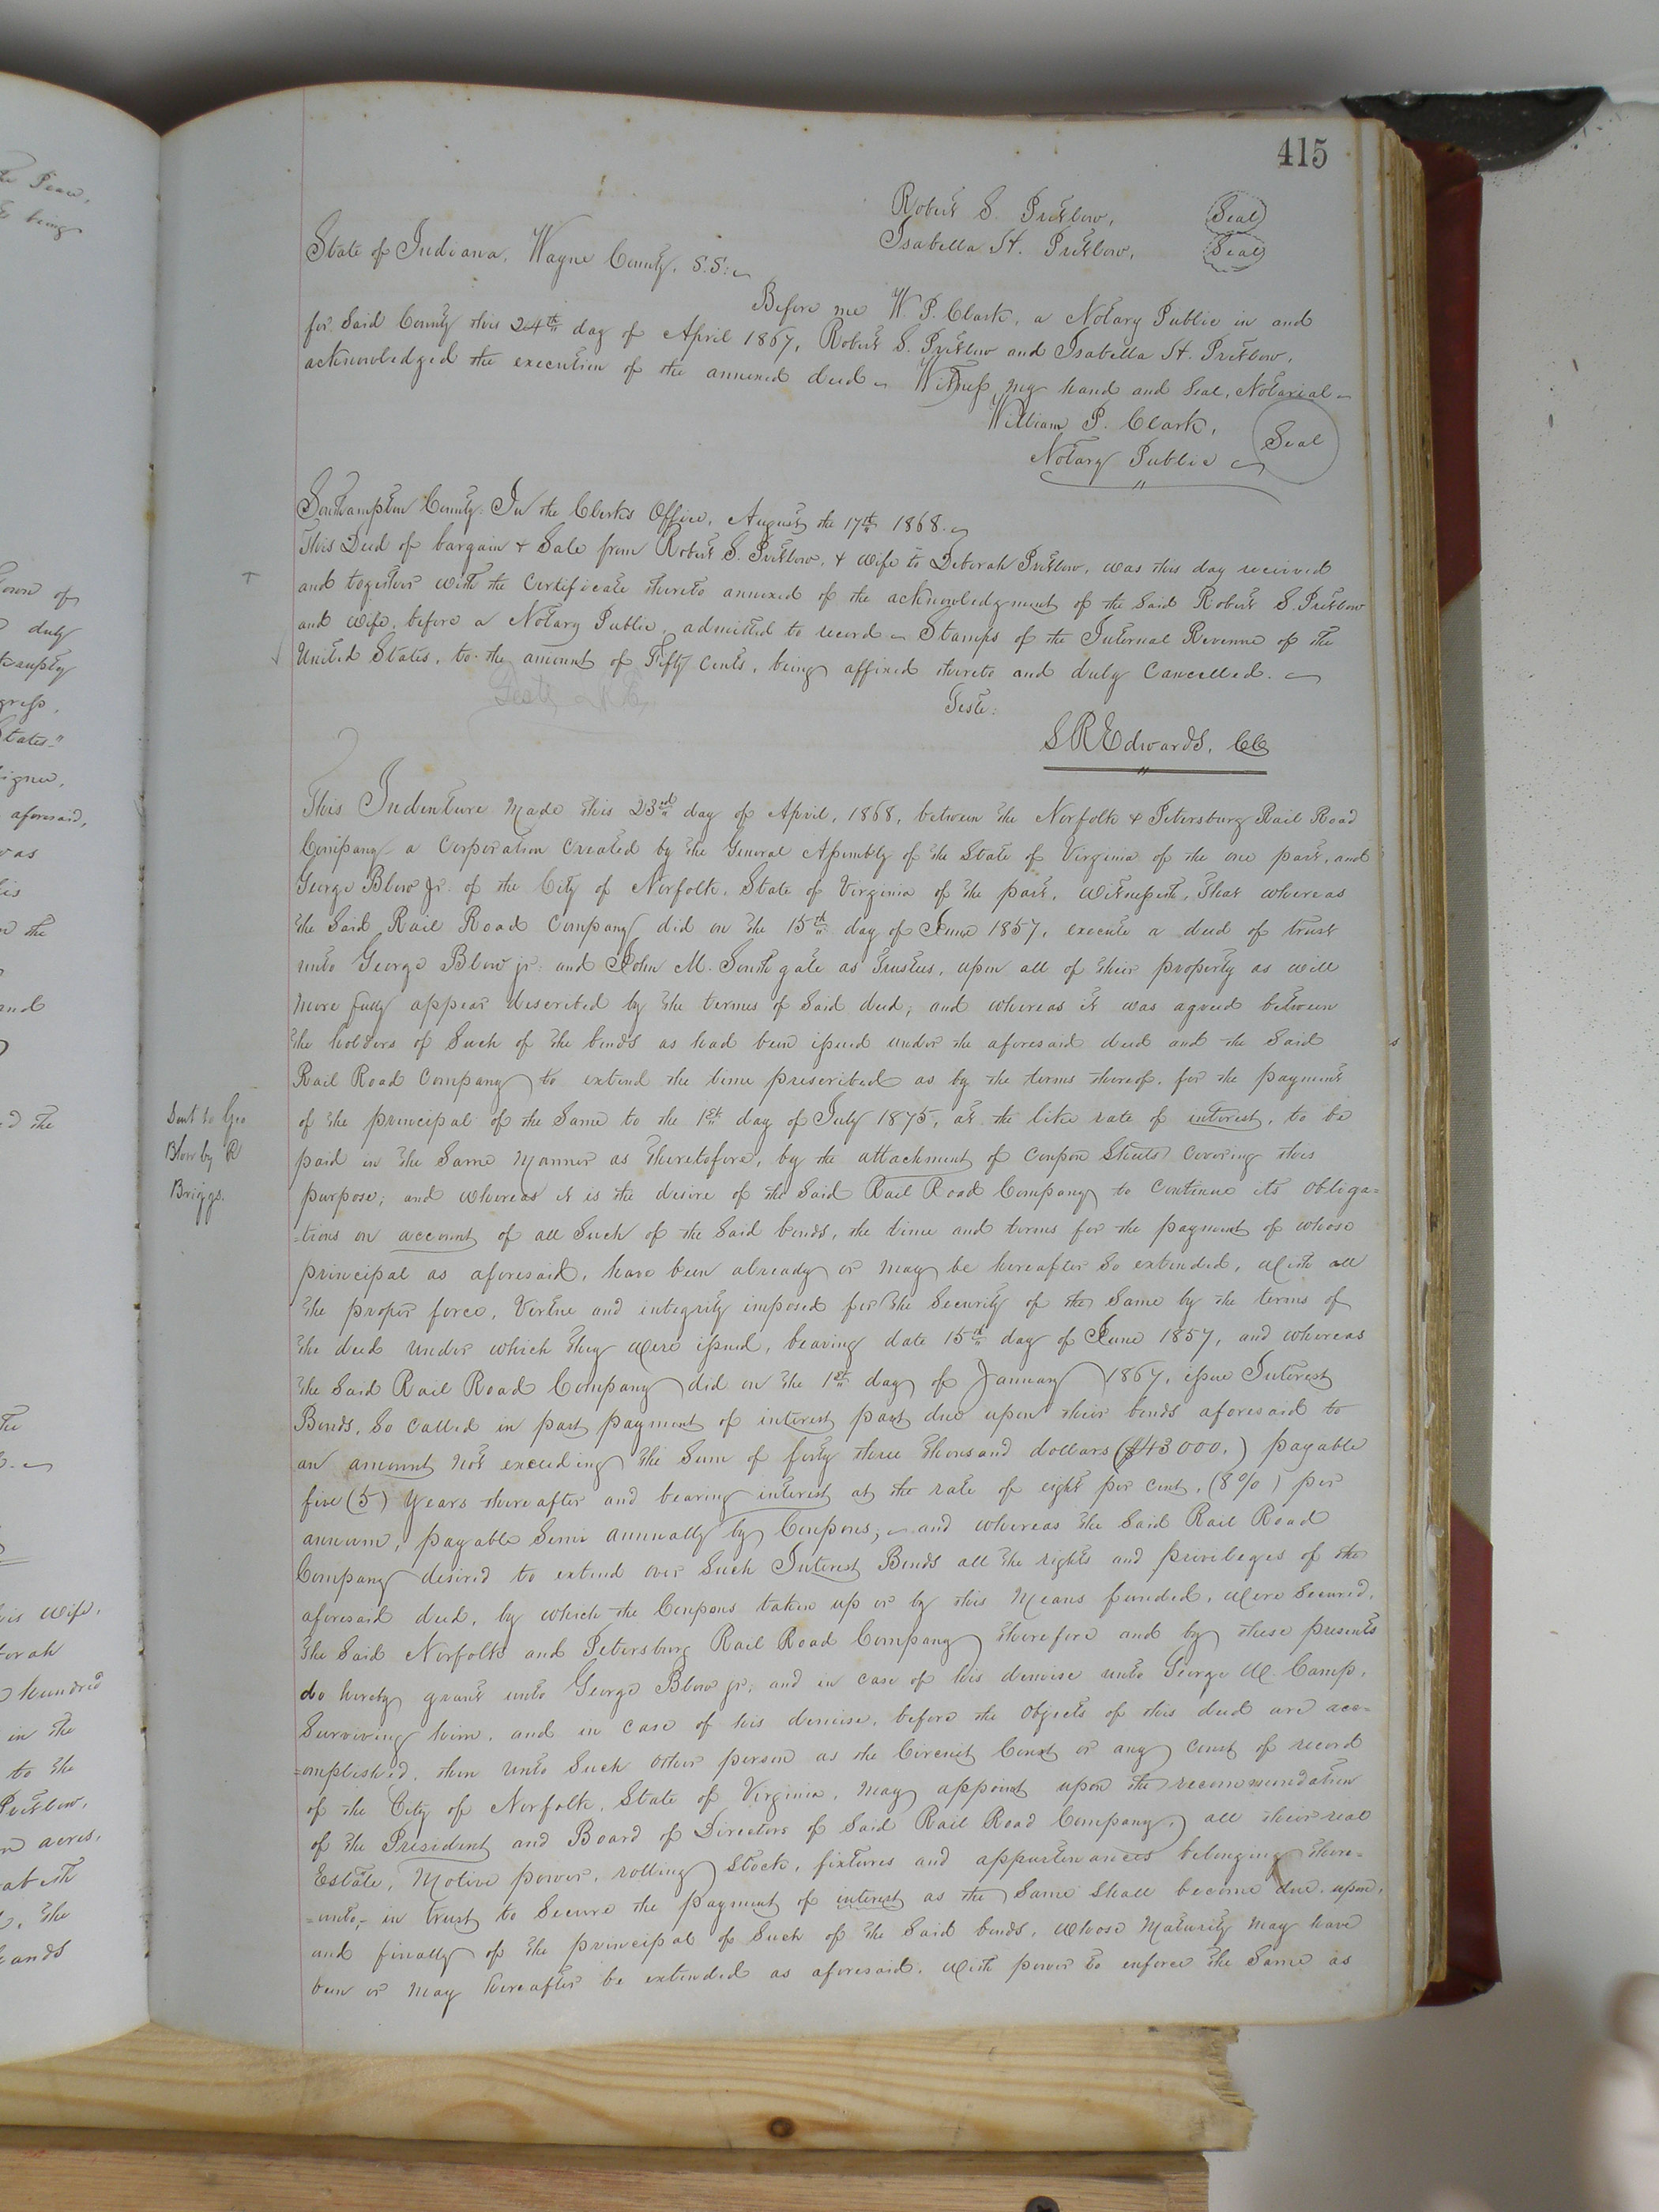 415
Robert S. Pretlow, Seal
Isabella H. Pretlow, Seal
State of Indiana, Wayne County, S.S:
Before me W. P. Clark, a Notary Public in and
for Said County this 24th day of April 1867, Robert S. Pretlow and Isabella H. Pretlow,
acknowledged the execution of the annexed deed Witness my hand and Seal, Notarial
William P. Clark, Seal
Notary Public
Southampton County: In the Clerks Office, August the 17th 1868.
This Deed of bargain & Sale from Robert S. Pretlow, & wife to Deborah Pretlow, was this day received
and together with the Certificate thereto annexed of the acknowledgment of the Said Robert S. Pretlow
and wife, before a Notary Public, admitted to record Stamps of the Internal Revenue of the
United States, to the amount of Fifty cents, being affixed thereto and duly Cancelled.
Teste:
S R Edwards, CC
This Indenture Made this 23rd day of April, 1868, between the Norfolk & Petersburg Rail Road
Company a Corporation Created by the General Assembly of the State of Virginia of the one part, and
George Blow Jr. of the City of Norfolk, State of Virginia of the part, witnesseth, That whereas
the Said Rail Road Company did on the 15th day of June 1857, execute a deed of trust
unto George Blow jr: and John M. Southgate as Trustees, upon all of their property as will
more fully appear described by the terms of Said deed; and whereas it was agreed between
the holders of Such of the bonds as had been issued under the aforesaid deed and the Said
Rail Road Company to extend the time prescribed as by the terms thereof, for the payment
of the principal of the Same to the 1st day of July 1875, at the like rate of interest, to be
paid in the Same Manner as theretofore, by the attachment of coupon Sheets Covering this
purpose; and whereas it is the desire of the Said Rail Road Company to continue its obliga=
=tions on account of all Such of the Said bonds, the time and terms for the payment of whose
principal as aforesaid, have been already or may be hereafter So extended, with all
the proper force, Virtue and integrity imposed for the Security of the Same by the terms of
the deed under which they were issued, bearing date 15th day of June 1857, and whereas
the Said Rail Road Company did on the 1st day of January 1867, issue Interest
Bonds, So called in part payment of interest past due upon their bonds aforesaid to
an amount not exceeding the Sum of forty three thousand dollars ($43000.) payable
five (5) years thereafter and bearing interest at the rate of eight per cent, (8%) per
annum, payable Semi annually by Coupons; and whereas the Said Rail Road
Company desired to extend over Such Interest Bonds all the rights and privileges of the
aforesaid deed, by which the Coupons taken up or by this Means funded, were Secured,
The Said Norfolk and Petersburg Rail Road Company therefore and by these presents
do hereby grant unto George Blow jr; and in case of his demise unto George W. Camp,
Surviving him, and in case of his demise, before the objects of this deed are acc=
=omplished, then unto Such other person as the Circuit Court or any court of record
of the City of Norfolk, State of Virginia, may appoint upon the recommendation
of the President and Board of Directors of Said Rail Road Company, all their real
Estate, Motive power, rolling Stock, fixtures and appurtenances belonging there=
=unto, in trust to Secure the payment of interest as the Same Shall become due, upon,
and finally of the principal of Such of the Said bonds, whose Maturity may have
been or may hereafter be extended as aforesaid, with power to enforce the Same as
Sent to Geo
Blow by R
Briggs.